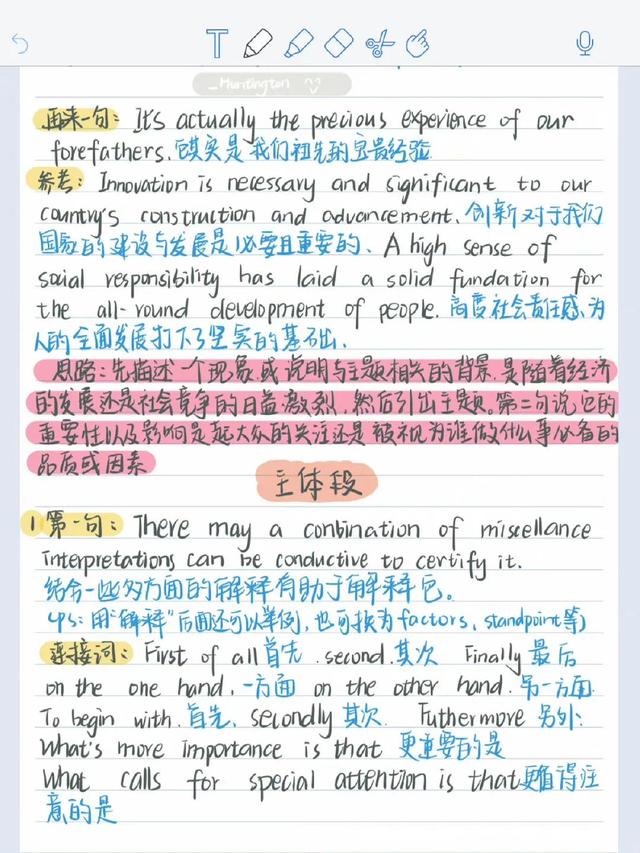 Huntington
再来一句: It's actually the precious experience of our
forefathers. 它其实是我们祖先的宝贵经验
参考: Innovation is necessary and significant to our
country's construction and advancement. 创新对于我们
国家的建设与发展是必要且重要的、A high sense of
social responsibility has laid a solid fundation for
the all-round development of people. 高度社会责任感、为
人的全面发展打下了坚实的基础.
思路:先描述一个现象,或说明与主题相关的背景,是随着经济
的发展还是社会竞争的日益激烈,然后引出主题。第二句说它的
重要性以及影响是起大众的关注还是被视为谁做什么事必备的
品质或因素
主体段
1 第一句: There may a conbination of miscellance
interpretations can be conductive to certify it.
结合一些多方面的解释有助于解释它。
(ps: 用"解释"后面还可以举例,也可换为factors、standpoint等)
连接词: First of all 首先 .second.其次 Finally 最后
on the one hand. 一方面 on the other hand. 另一方面
To begin with. 首先. secondly 其次. Futhermore 另外.
What's more importance is that 更重要的是
What calls for special attention is that 更值得注
意的是